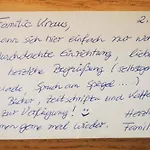 Familie Kraus, 2.
enn sich hier einfach nur wohl
urchdachte Einrichtung, liebe
herzliche Begrüßung (selbstge
ede, Spruch am Spiegel...)
Bücher, Zeitschriften und Kaffe
zur Verfügung! Herzli
men gerne mal wieder. Famil